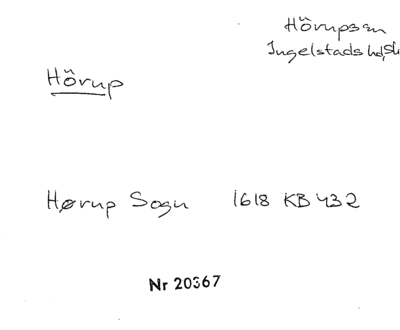 Hörupsn
Ingelstads hd, Sk
Hörup
Hørup Sogn 1618 KB 432
Nr 20367